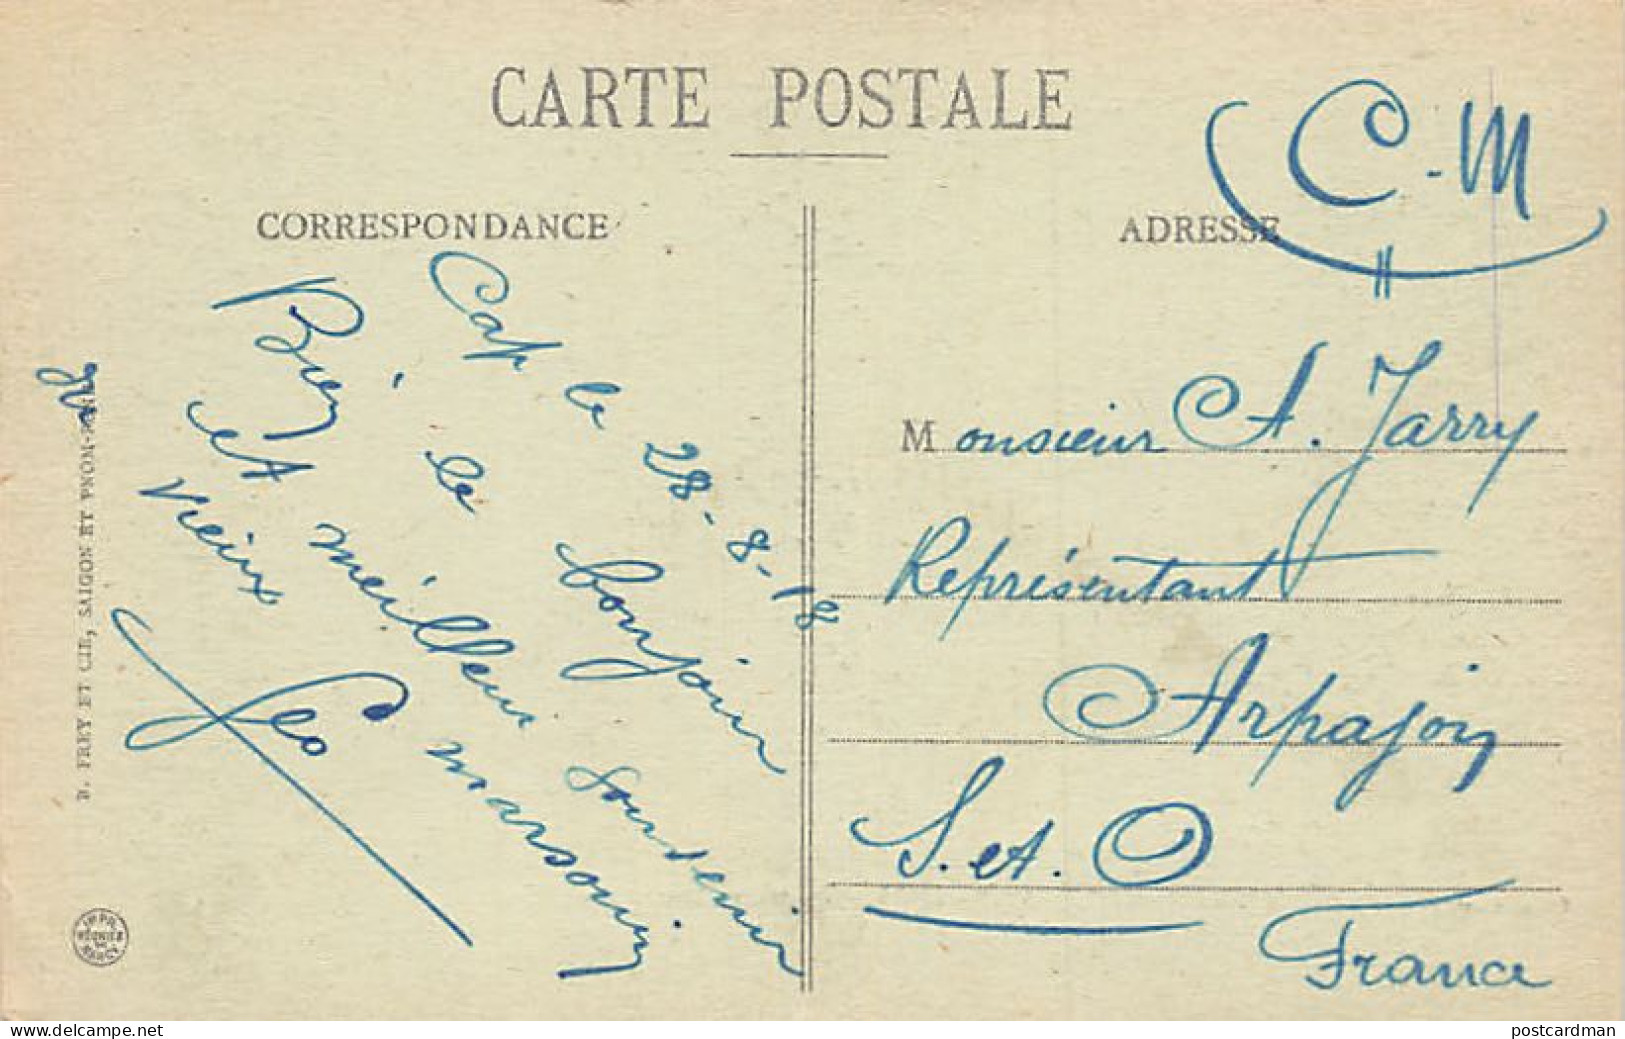 CARTE POSTALE
C-M
CORRESPONDANCE
ADRESSE
Cap le 28-8-18
Bien le bonjour
et meilleur souvenir
vieux marsouin
Geo
Monsieur A. Jarry
Représentant
Arpajon
S. et. O
France
B. FREY ET CIE, SAIGON ET PNOM-PENH
IMPR.
RÉUNIES
DE
NANCY
www.delcampe.net
postcardman